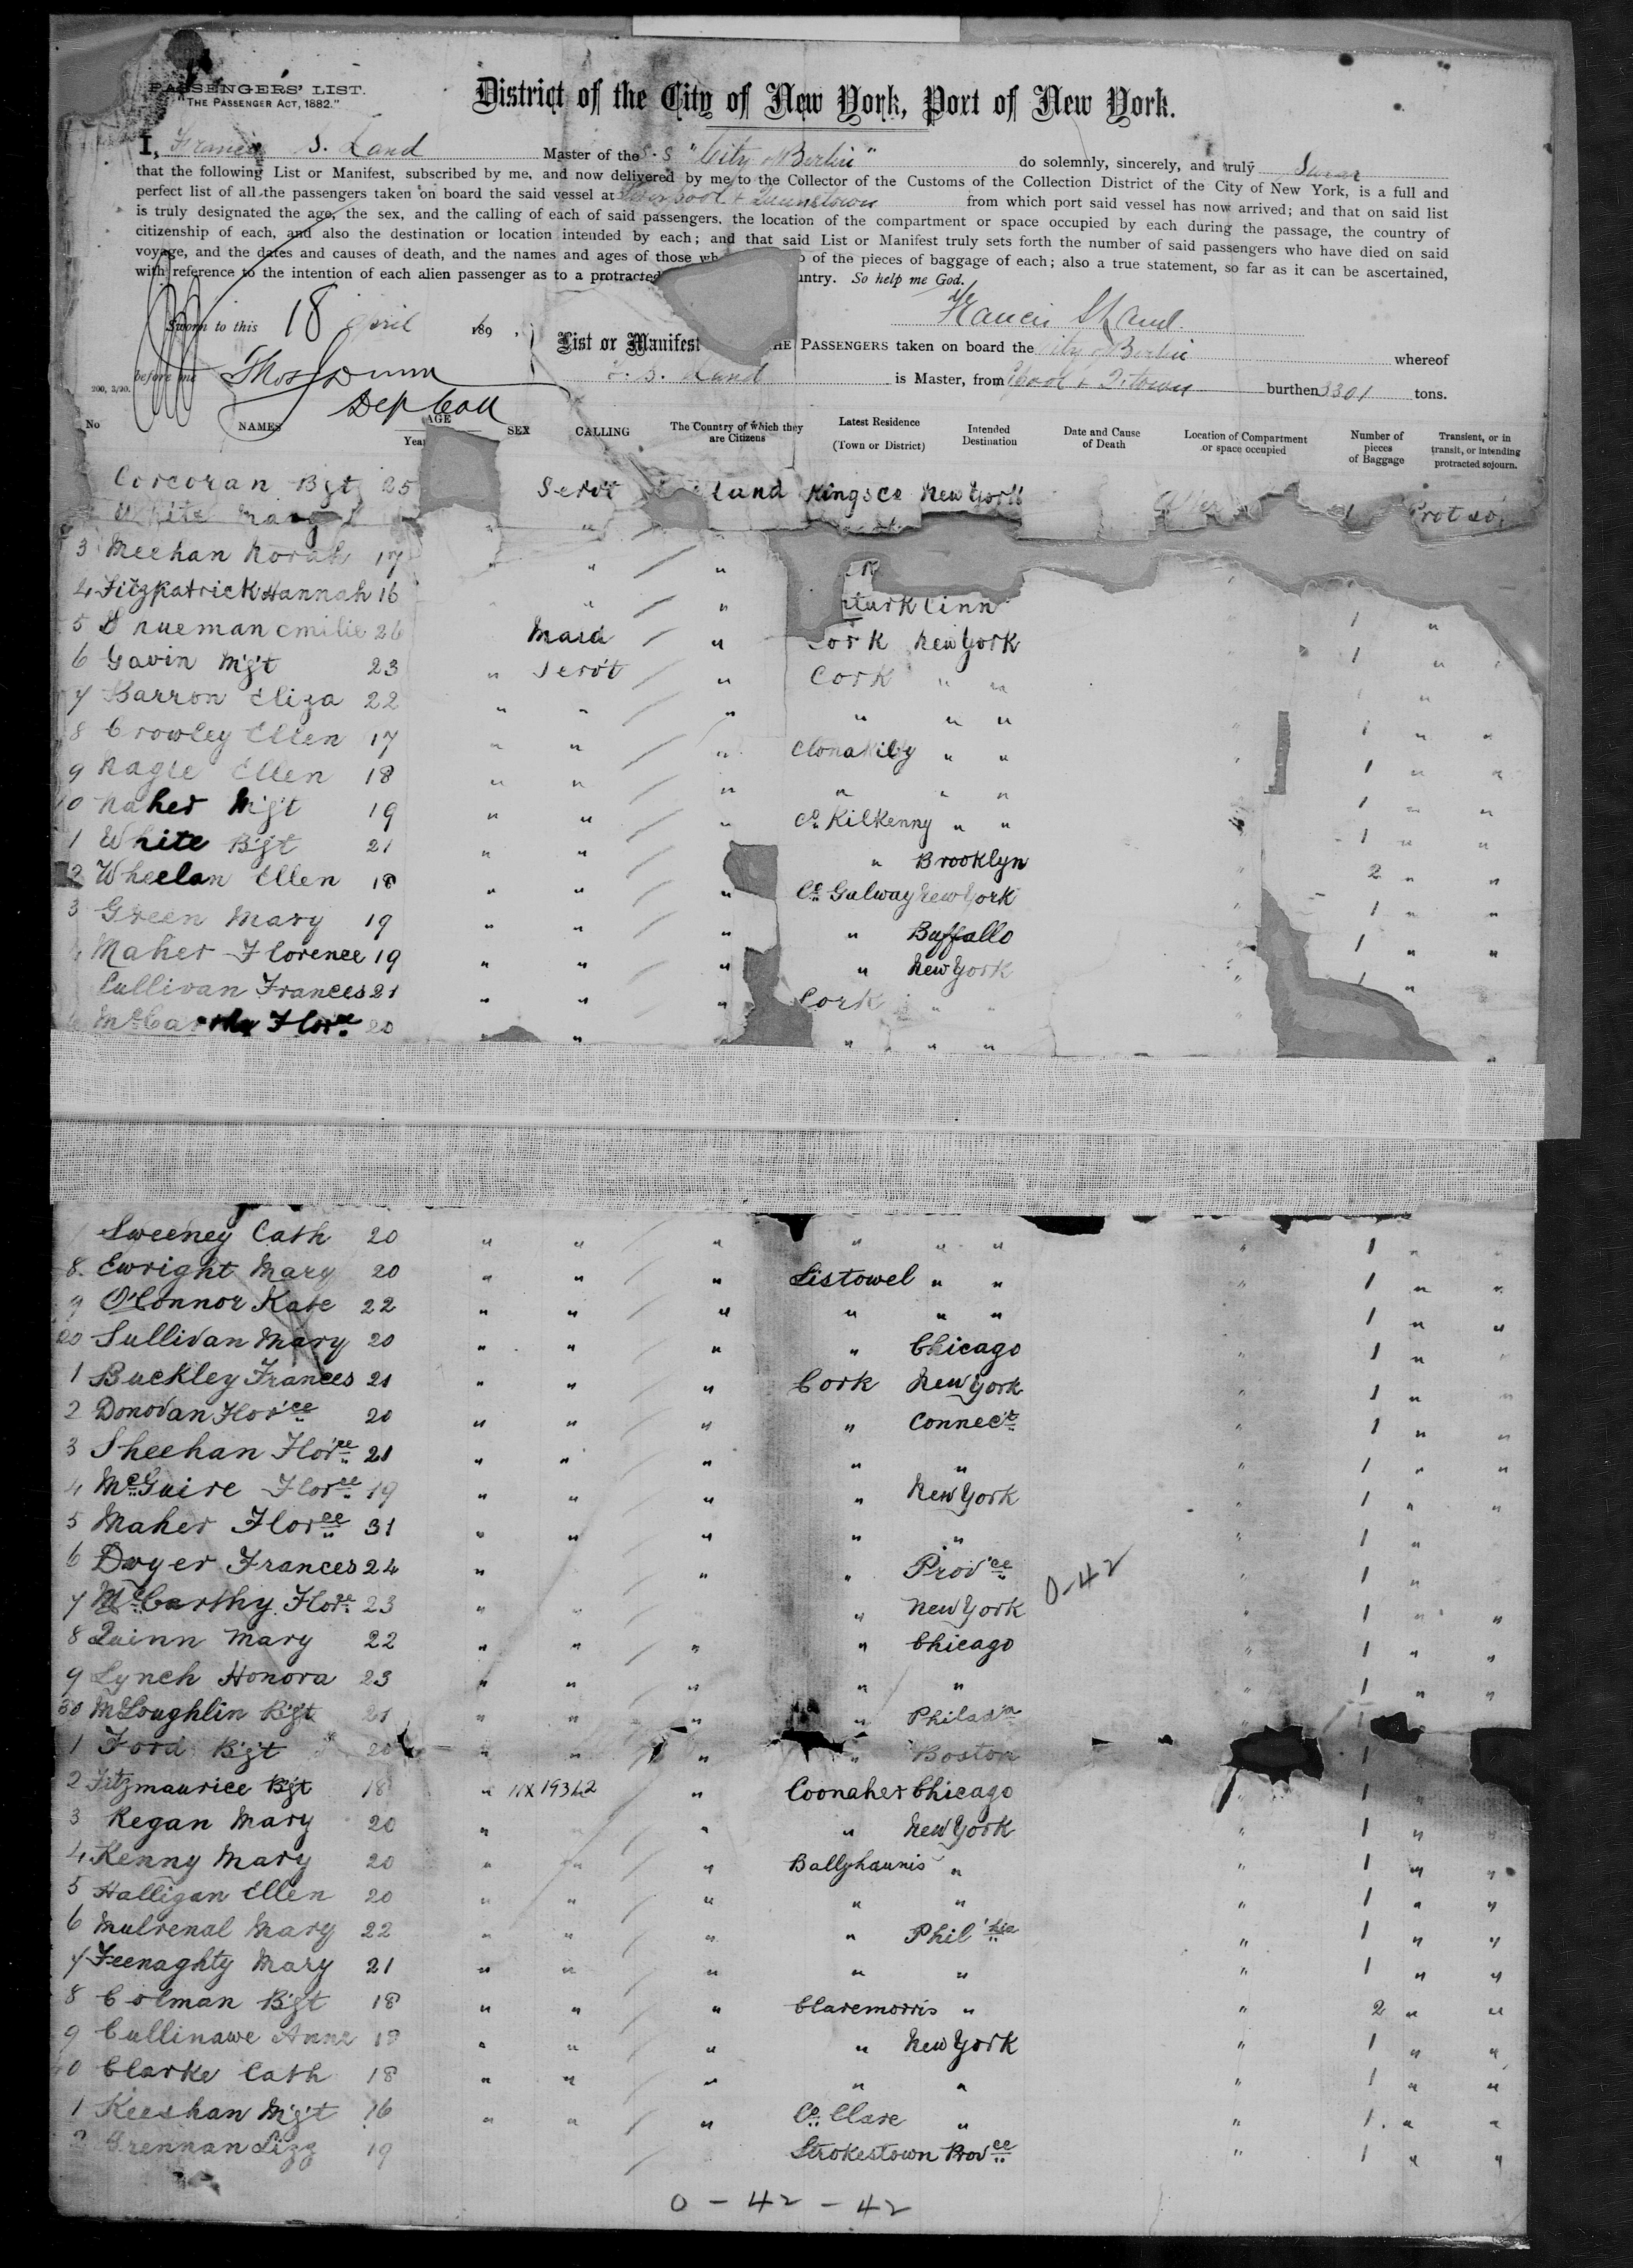 PASSENGERS' LIST.
"THE PASSENGER ACT, 1882."
District of the City of New York, Port of New York.
I, Francis S. Land Master of the S.S "City of Berlin" do solemnly, sincerely, and truly Swear
that the following List or Manifest, subscribed by me, and now delivered by me to the Collector of the Customs of the Collection District of the City of New York, is a full and
perfect list of all the passengers taken on board the said vessel at Liverpool + Queenstown from which port said vessel has now arrived; and that on said list
is truly designated the age, the sex, and the calling of each of said passengers, the location of the compartment or space occupied by each during the passage, the country of
citizenship of each, and also the destination or location intended by each; and that said List or Manifest truly sets forth the number of said passengers who have died on said
voyage, and the dates and causes of death, and the names and ages of those of the pieces of baggage of each; also a true statement, so far as it can be ascertained,
with reference to the intention of each alien passenger as to a protracted untry. So help me God.
Sworn to this 18 April 189
Francis S Land
List or Manifest HE PASSENGERS taken on board the City of Berlin whereof
before me S. Land is Master, from L'pool + Q.town burthen 3301 tons.
200, 3/90.
Dep Coll
No NAMES AGE SEX CALLING The Country of which they are Citizens Latest Residence (Town or District) Intended Destination Date and Cause of Death Location of Compartment or space occupied Number of pieces of Baggage Transient, or in transit, or intending protracted sojourn.
Corcoran Bgt 25 Serv't land Kings Co New York Prot so
White Marg't
3 Meehan Norah 17 " " "
4 Fitzpatrick Hannah 16 " " turk Cinn
5 Emilie 26 Maid " Cork New York 1 "
6 Gavin Mgt 23 " Serv't " Cork " " 1 " "
7 Barron Eliza 22 " " " " " " "
8 Crowley Ellen 17 " " " Clonakilty " " " 1 " "
9 Nagle Ellen 18 " " " " " " 1 " "
10 Maher Mgt 19 " " " Co Kilkenny " " 1 " "
1 White Bgt 21 " " " Brooklyn " 1 " "
2 Wheelan Ellen 18 " " " Co Galway New York 2 " "
3 Green Mary 19 " " " " Buffallo " 1 " "
4 Maher Florence 19 " " " " New York " 1 " "
Cullivan Frances 21 " " " Cork " " " 1 "
McCarthy Flor'ce 20 " " " " " "
Sweeney Cath 20 " " " " " " " 1 " "
8 Ewright Mary 20 " " " Listowel " " " 1 " "
9 O'Connor Kate 22 " " " " " " 1 " "
20 Sullivan Mary 20 " " " " Chicago " 1 " "
1 Buckley Frances 21 " " " Cork New York " 1 " "
2 Donovan Flor'ce 20 " " " " Connec't " 1 " "
3 Sheehan Flor'ce 21 " " " " " " 1 " "
4 McGuire Flor'ce 19 " " " " New York " 1 " "
5 Maher Flor'ce 31 " " " " " " 1 "
6 Dwyer Frances 24 " " " Prov'ce " 1 "
0-42
7 McCarthy Flor'ce 23 " " " New York " 1 " "
8 Quinn Mary 22 " " " " Chicago " 1 " "
9 Lynch Honora 23 " " " " " " 1 " "
30 McLoughlin Bgt 21 " " " " Philad'a 1
1 Ford Bgt 20 " " " " Boston 1
2 Fitzmaurice Bgt 18 " " Coonaher Chicago " 1 "
3 Regan Mary 20 " " " New York " 1 " "
4 Kenny Mary 20 " " " Ballyhaunis " " 1 " "
5 Halligan Ellen 20 " " " " " " 1 " "
6 Mulrenal Mary 22 " " " " Phil'hia " 1 " "
7 Feenaghty Mary 21 " " " " " " 1 " "
8 Colman Bgt 18 " " " Claremorris " " 2 " "
9 Cullinawe Anne 19 " " " " New York " 1 " "
40 Clarke Cath 18 " " " " " " 1 " "
1 Keeshan Mgt 16 " " " Co. Clare " " 1 " "
2 Grennan Lizz 19 Strokestown Prov'ce " 1 " "
0 - 42 - 42